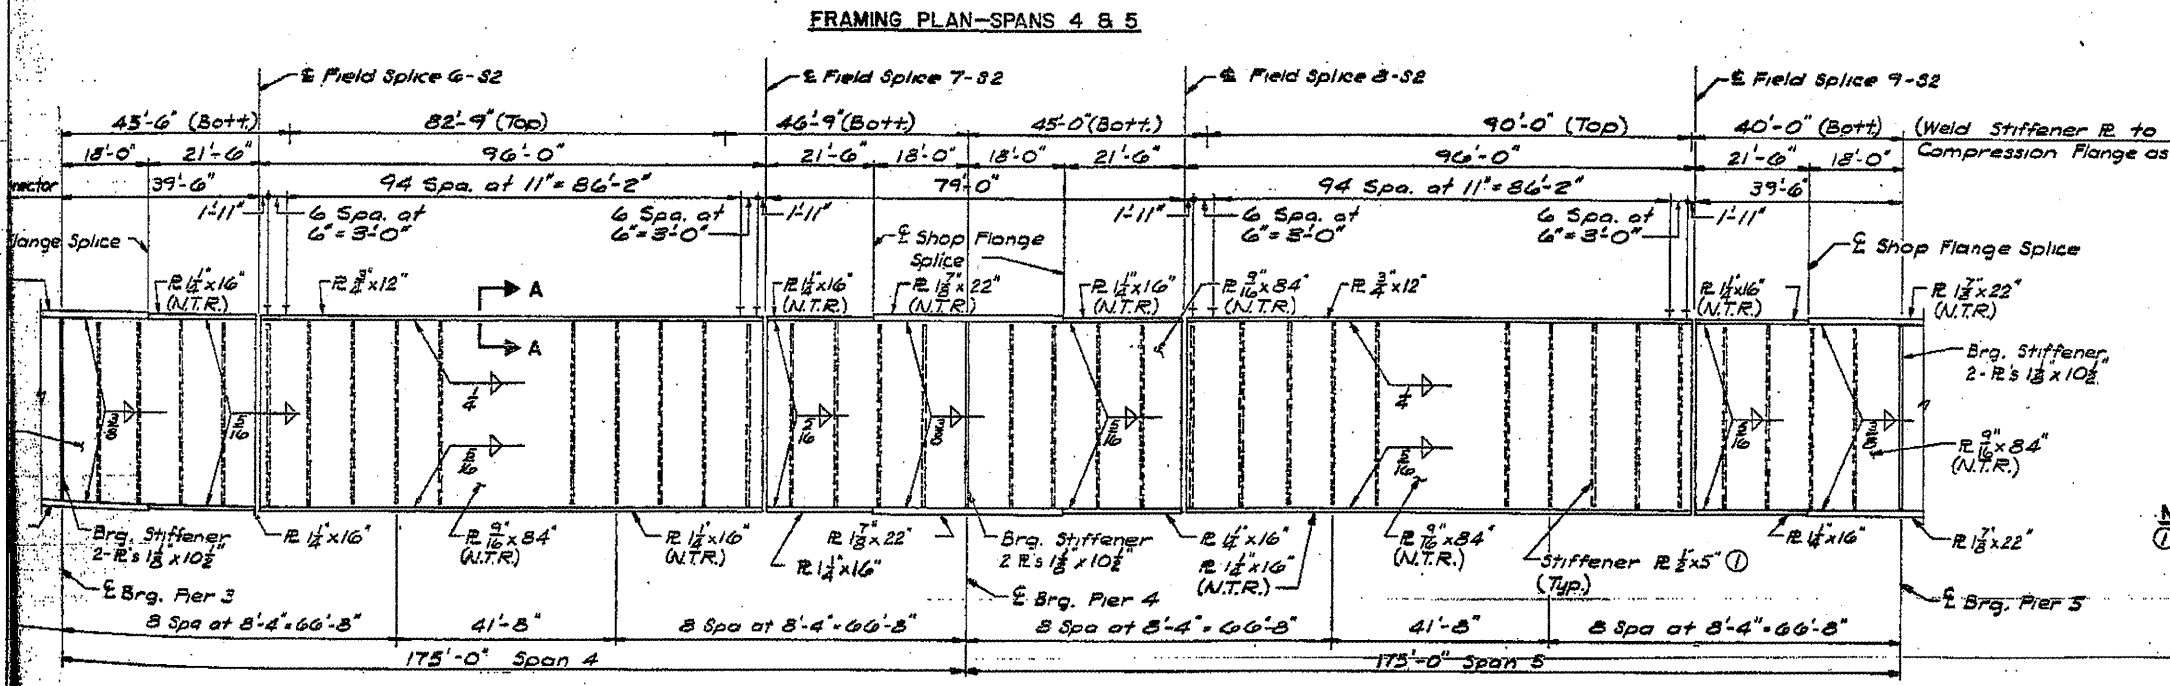 FRAMING PLAN-SPANS 4 & 5
℄ Field Splice 6-S2
℄ Field Splice 7-S2
℄ Field Splice 8-S2
℄ Field Splice 9-S2
45'-6" (Bott.)
82'-9" (Top)
46'-9" (Bott.)
45'-0" (Bott.)
90'-0" (Top)
40'-0" (Bott)
(Weld Stiffener ℄ to
Compression Flange as
18'-0"
21'-6"
96'-0"
21'-6"
18'-0"
18'-0"
21'-6"
96'-0"
21'-6"
18'-0"
nector
39'-6"
94 Spa. at 11" = 86'-2"
79'-0"
94 Spa. at 11" = 86'-2"
39'-6"
1'-11"
6 Spa. at
6" = 3'-0"
6 Spa. at
6" = 3'-0"
1'-11"
1'-11"
6 Spa. at
6" = 3'-0"
6 Spa. at
6" = 3'-0"
1'-11"
lange Splice
℄ Shop Flange
Splice
℄ Shop Flange Splice
PL 1 1/4" x 16"
(N.T.R.)
PL 3/4" x 12"
A
A
PL 1 1/4" x 16"
(N.T.R.)
PL 1 7/8" x 22"
(N.T.R.)
PL 1 1/4" x 16"
(N.T.R.)
PL 9/16" x 84"
(N.T.R.)
PL 3/4" x 12"
PL 1 1/4" x 16"
(N.T.R.)
PL 1 7/8" x 22"
(N.T.R.)
Brg. Stiffener
2-PL's 1 1/8" x 10 1/2"
3/8
5/16
1/4
5/16
5/16
3/8
5/16
1/4
5/16
5/16
3/8
PL 9/16" x 84"
(N.T.R.)
Brg. Stiffener
2-PL's 1 1/8" x 10 1/2"
PL 1 1/4" x 16"
PL 9/16" x 84"
(N.T.R.)
PL 1 1/4" x 16"
(N.T.R.)
PL 1 1/4" x 16"
PL 1 7/8" x 22"
Brg. Stiffener
2 PL's 1 1/8" x 10 1/2"
PL 1 1/4" x 16"
PL 1 1/4" x 16"
(N.T.R.)
PL 9/16" x 84"
(N.T.R.)
Stiffener PL 1/2" x 5" ①
(Typ.)
PL 1 1/4" x 16"
PL 1 7/8" x 22"
N
①
℄ Brg. Pier 3
℄ Brg. Pier 4
℄ Brg. Pier 5
8 Spa at 8'-4" = 66'-8"
41'-8"
8 Spa at 8'-4" = 66'-8"
8 Spa at 8'-4" = 66'-8"
41'-8"
8 Spa at 8'-4" = 66'-8"
175'-0" Span 4
175'-0" Span 5